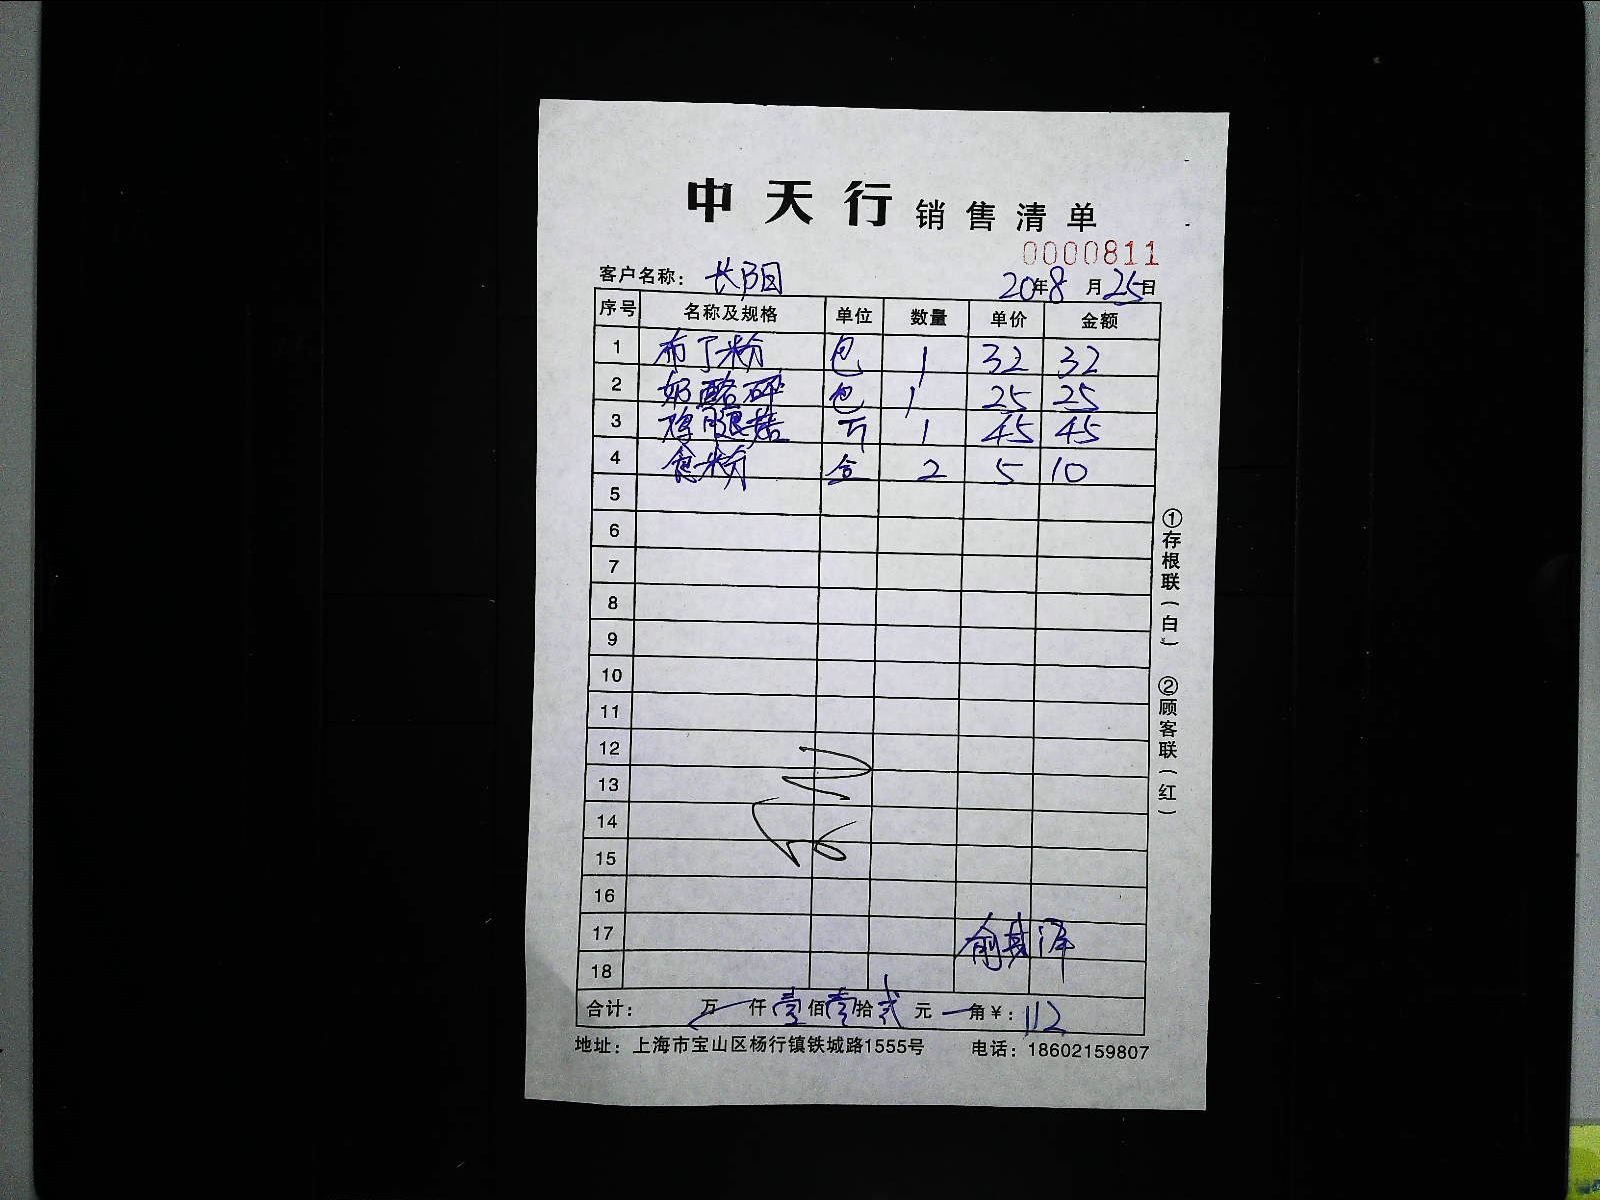 中天行 销售清单
0000811
客户名称: 长阳 20年8月25日
序号 名称及规格 单位 数量 单价 金额
1 布丁粉 包 1 32 32
2 奶酪碎 包 1 25 25
3 腿菇 斤 1 45 45
4 食粉 盒 2 5 10
5
6
7
8
9
10
11
12
13
14
15
16
17
18
合计: 万 仟 壹佰壹拾贰元 角¥: 112
地址: 上海市宝山区杨行镇铁城路1555号 电话: 18602159807
①存根联(白) ②顾客联(红)